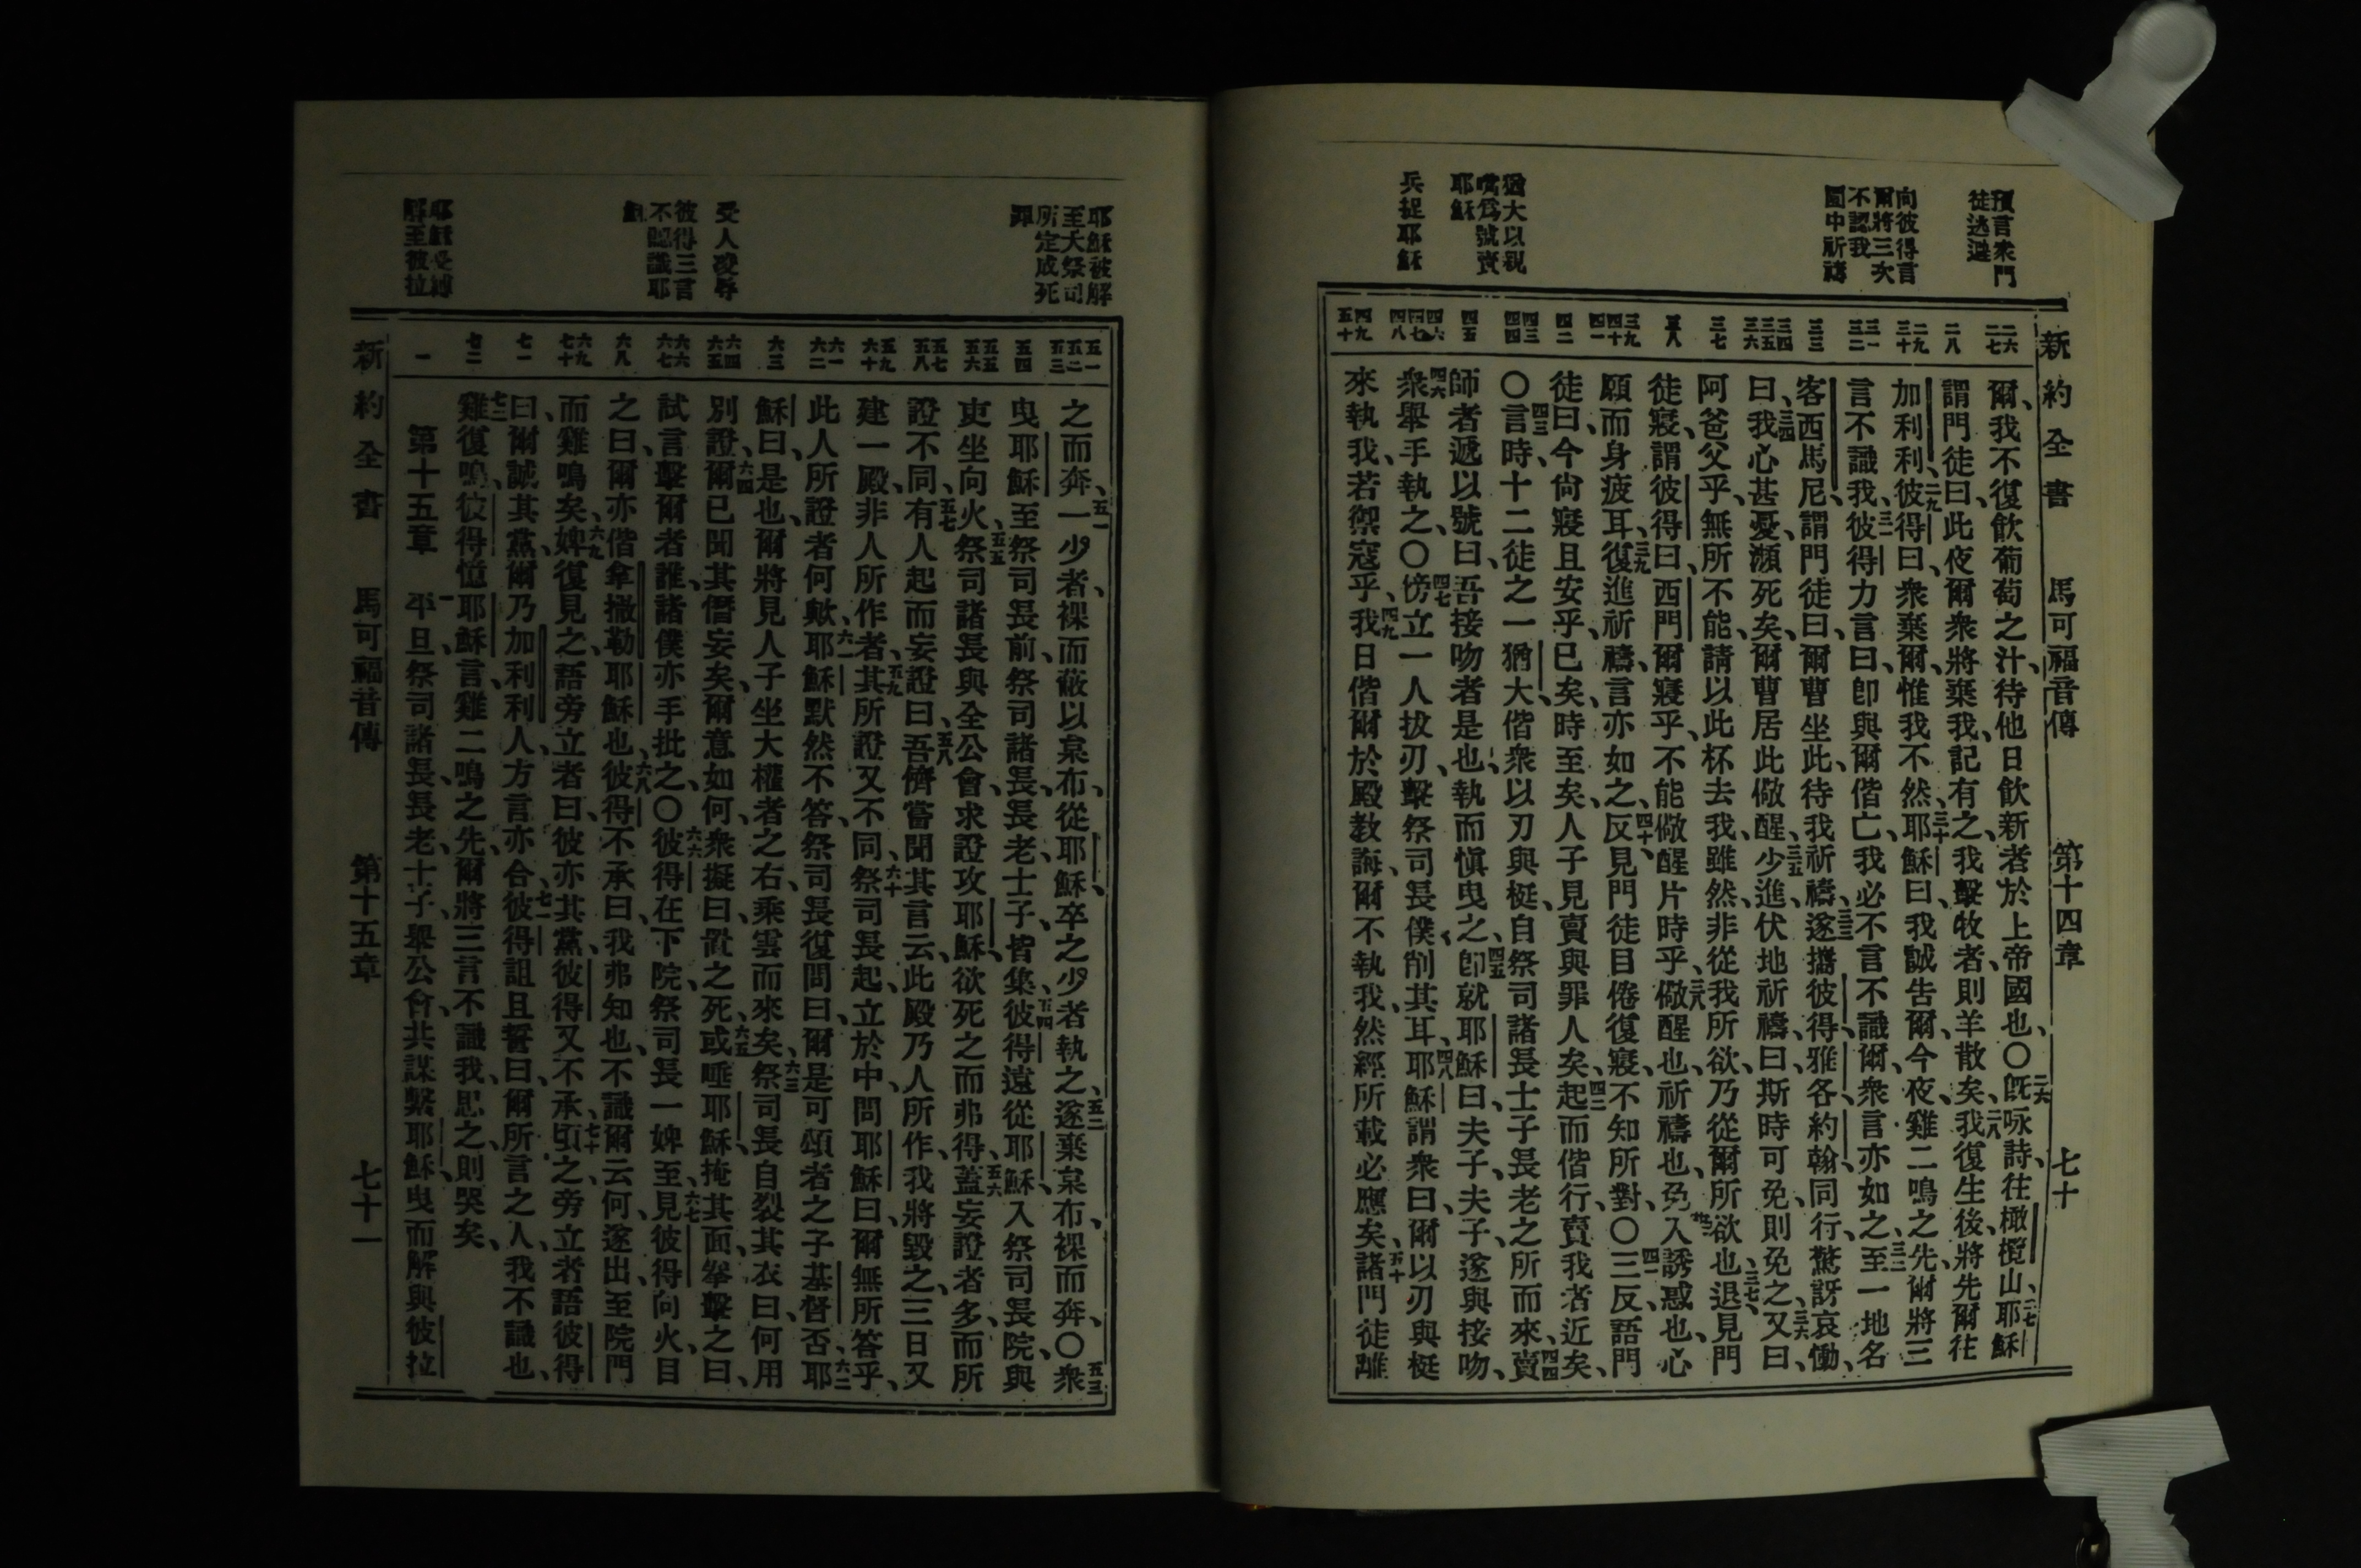 新約全書 馬可福音傳 第十四章 七十
預言衆門
徒逃避
向彼得言
爾將三次
不認我
園中祈禱
猶大以親
嘴爲號賣
耶穌
兵捉耶穌
二六
二七
二八
二九
三十
三一
三二
三三
三四
三五
三六
三七
三八
三九
四十
四一
四二
四三
四四
四五
四六
四七
四八
四九
五十
爾、我不復飲葡萄之汁、待他日飲新者於上帝國也、〇二六旣咏詩、往橄欖山、二七耶穌
謂門徒曰、此夜爾衆將棄我、記有之、我擊牧者、則羊散矣、二八我復生後、將先爾往
加利利、二九彼得曰、衆棄爾、惟我不然、三十耶穌曰、我誠告爾、今夜、雞二鳴之先、爾將三
言不識我、三一彼得力言曰、卽與爾偕亡、我必不言不識爾、衆言亦如之、三二至一地名
客西馬尼、謂門徒曰、爾曹坐此、待我祈禱、三三遂攜彼得、雅各、約翰、同行、驚訝哀慟、
曰、三四我心甚憂、瀕死矣、爾曹居此儆醒、三五少進、伏地祈禱、曰、斯時可免、則免之、三六又曰、
阿爸父乎、無所不能、請以此杯去我、雖然、非從我所欲、乃從爾所欲也、三七退見門
徒寢、謂彼得曰、西門爾寢乎、不能儆醒片時乎、三八儆醒也、祈禱也、免入誘惑也、心
願而身疲耳、三九復進祈禱、言亦如之、四十反見門徒目倦復寢、不知所對、〇四一三反、語門
徒曰、今尙寢且安乎、已矣、時至矣、人子見賣與罪人矣、四二起而偕行、賣我者近矣、
〇四三言時、十二徒之一猶大、偕衆以刃與梃、自祭司諸長士子長老之所而來、四四賣
師者遞以號曰、吾接吻者是也、執而愼曳之、四五卽就耶穌曰、夫子、夫子、遂與接吻、
四六衆舉手執之、〇四七傍立一人拔刃、擊祭司長僕、削其耳、四八耶穌謂衆曰、爾以刃與梃
來執我、若禦寇乎、四九我日偕爾於殿教誨、爾不執我、然經所載必應矣、五十諸門徒離
耶穌被解
至大祭司
所定成死
罪
受人凌辱
彼得三言
不認識耶
穌
耶穌受縛
解至彼拉
五一
五二
五三
五四
五五
五六
五七
五八
五九
六十
六一
六二
六三
六四
六五
六六
六七
六八
六九
七十
七一
七二
一
之而奔、五一一少者、裸而蔽以枲布、從耶穌、卒之少者執之、五二遂棄枲布、裸而奔、〇五三衆
曳耶穌至祭司長前、祭司諸長、長老、士子、皆集、五四彼得遠從耶穌、入祭司長院、與
吏坐向火、五五祭司諸長與全公會、求證攻耶穌、欲死之而弗得、五六蓋妄證者多、而所
證不同、五七有人起而妄證曰、五八吾儕嘗聞其言云、此殿乃人所作、我將毀之、三日又
建一殿、非人所作者、五九其所證又不同、六十祭司長起、立於中、問耶穌曰、爾無所答乎、
此人所證者何歟、六一耶穌默然不答、祭司長復問曰、爾是可頌者之子基督否、六二耶
穌曰、是也、爾將見人子坐大權者之右、乘雲而來矣、六三祭司長自裂其衣曰、何用
別證、六四爾已聞其僭妄矣、爾意如何、衆擬曰、置之死、六五或唾耶穌、掩其面、拳擊之曰、
試言擊爾者誰、諸僕亦手批之、〇六六彼得在下院、祭司長一婢至、六七見彼得向火、目
之曰、爾亦偕拿撒勒耶穌也、六八彼得不承曰、我弗知也、不識爾云何、遂出、至院門
而雞鳴矣、六九婢復見之、語旁立者曰、彼亦其黨、彼得又不承、七十頃之、旁立者語彼得
曰、爾誠其黨、爾乃加利利人、方言亦合、七一彼得詛且誓曰、爾所言之人、我不識也、
七二雞復鳴、彼得憶耶穌言、雞二鳴之先、爾將三言不識我、思之、則哭矣、
第十五章 一平旦、祭司諸長、長老、士子、舉公會、共謀繫耶穌、曳而解與彼拉
新約全書 馬可福音傳 第十五章 七十一